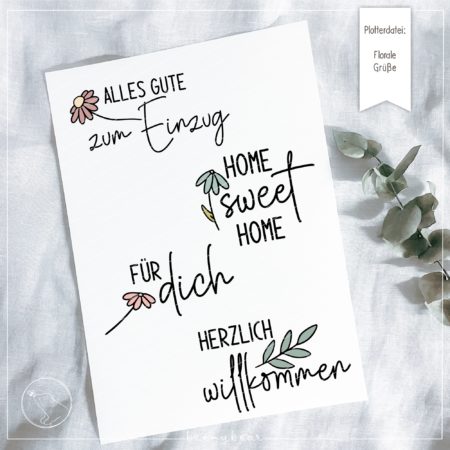 Plotterdatei:
Florale
Grüße
ALLES GUTE
zum Einzug
HOME
sweet
HOME
FÜR
dich
HERZLICH
willkommen